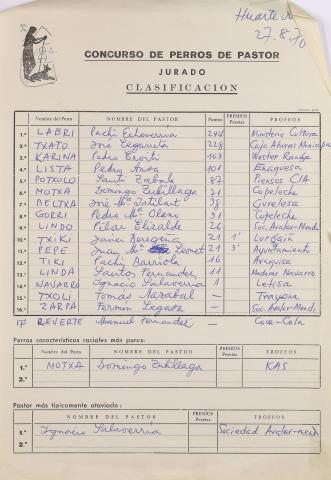 Huarte
27.8.70
CONCURSO DE PERROS DE PASTOR
JURADO
CLASIFICACION
Nombre del Perro NOMBRE DEL PASTOR Puntos PREMIOS Pesetas TROFEOS
1.º LABRI Pachi Echeverria 244 Ministerio Cultura
2.º TXATO José Legarreta 228 Caja Ahorros Municipal
3.º KARINA Pedro 163
4.º LISTA Pedro 101 Enaquesa
5.º POTXOLO Santi Zabala 87 Piensos CIA
6.º MOTXA Domingo Zubillaga 71 Copeleche
7.º BELTXA José Mª 38 Gurelesa
8.º GORRI Pedro Mª Olano 31 Copeleche
9.º LINDO Pilar Elizalde 26 Soc. Aralar-Mendi
10.º TXIKI Javier 21 1' Lurgain
11.º PEPE Juan Mª 21 3' Ayuntamiento
12.º TIKI Pachi Barriola 16
13.º LINDA Santos Fernandez 11 Maderas Navarro
14.º NAVARRO Ignacio Salaverria 1 Letisa
15.º TXOLI Tomas — 
16.º ZARPA Fermin Legarra — Soc. Aralar-Mendi
17º REVERTE Manuel Fernandez — Coca-Cola
Perros característicos raciales más puros:
Nombre del Perro NOMBRE DEL PASTOR TROFEOS
1.º MOTXA Domingo Zubillaga KAS
2.º
Pastor más típicamente ataviado:
NOMBRE DEL PASTOR PREMIOS Pesetas TROFEOS
1.º Ignacio Salaverria Sociedad Aralar-mendi
2.º